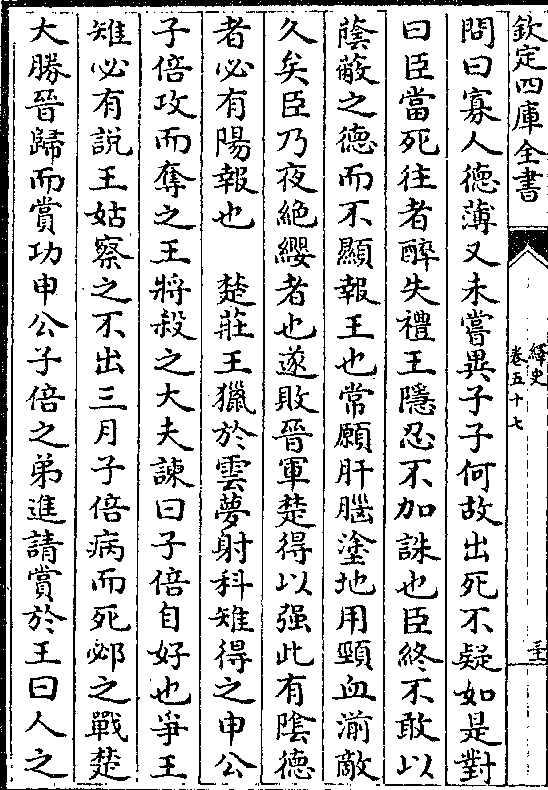 欽定四庫全書
繹史
卷五十七
問曰寡人德薄又未嘗異子子何故出死不疑如是對
曰臣當死往者醉失禮王隱忍不加誅也臣終不敢以
蔭蔽之德而不顯報王也常願肝腦塗地用頸血湔敵
久矣臣乃夜絶纓者也遂敗晉軍楚得以强此有陰德
者必有陽報也　楚莊王獵於雲夢射科雉得之申公
子倍攻而奪之王將殺之大夫諫曰子倍自好也爭王
雉必有說王姑察之不出三月子倍病而死邲之戰楚
大勝晉歸而賞功申公子倍之弟進請賞於王曰人之